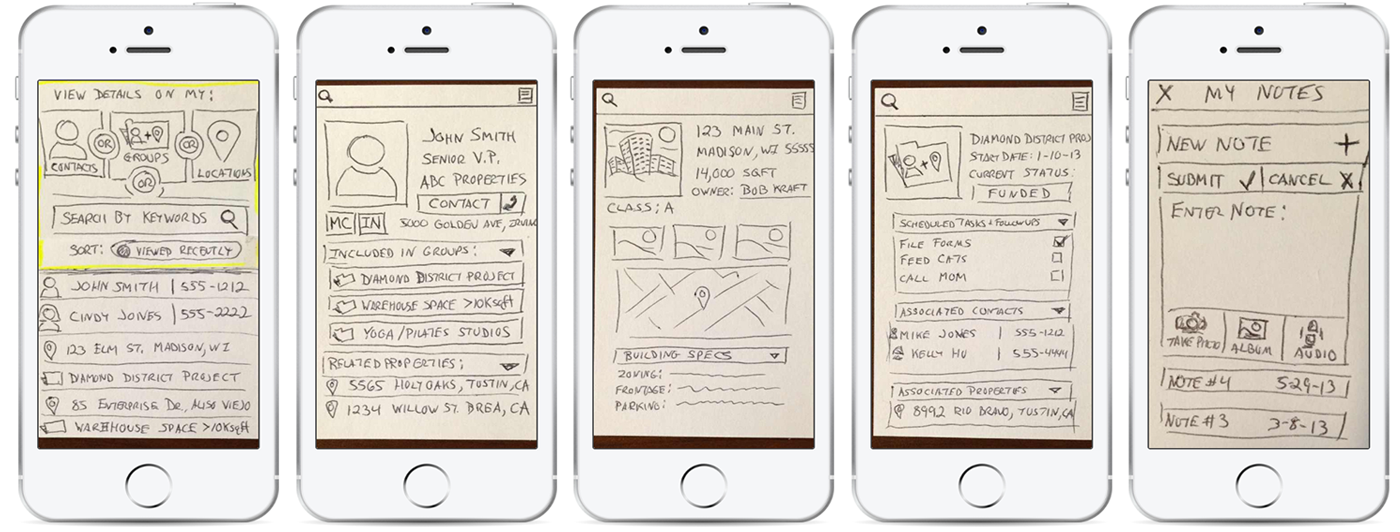 VIEW DETAILS ON MY:
OR
OR
CONTACTS
GROUPS
LOCATIONS
OR
SEARCH BY KEYWORDS
SORT: VIEWED RECENTLY
JOHN SMITH | 555-1212
CINDY JONES | 555-2222
123 ELM ST. MADISON, WI
DIAMOND DISTRICT PROJECT
85 ENTERPRISE DR., ALISO VIEJO
WAREHOUSE SPACE >10K sqft
JOHN SMITH
SENIOR V.P.
ABC PROPERTIES
CONTACT
MC IN 5000 GOLDEN AVE, IRVINE
INCLUDED IN GROUPS:
DIAMOND DISTRICT PROJECT
WAREHOUSE SPACE >10K sqft
YOGA/PILATES STUDIOS
RELATED PROPERTIES:
5565 HOLY OAKS, TUSTIN, CA
1234 WILLOW ST. BREA, CA
123 MAIN ST.
MADISON, WI 55555
14,000 SQFT
OWNER: BOB KRAFT
CLASS: A
BUILDING SPECS
ZONING:
FRONTAGE:
PARKING:
DIAMOND DISTRICT PROJ
START DATE: 1-10-13
CURRENT STATUS:
FUNDED
SCHEDULED TASKS & FOLLOWUPS
FILE FORMS
FEED CATS
CALL MOM
ASSOCIATED CONTACTS
MIKE JONES | 555-1212
KELLY HU | 555-4444
ASSOCIATED PROPERTIES
8992 RIO BRAVO, TUSTIN, CA
X MY NOTES
NEW NOTE +
SUBMIT ✓ | CANCEL X
ENTER NOTE:
TAKE PHOTO
ALBUM
AUDIO
NOTE #4 5-29-13
NOTE #3 3-8-13